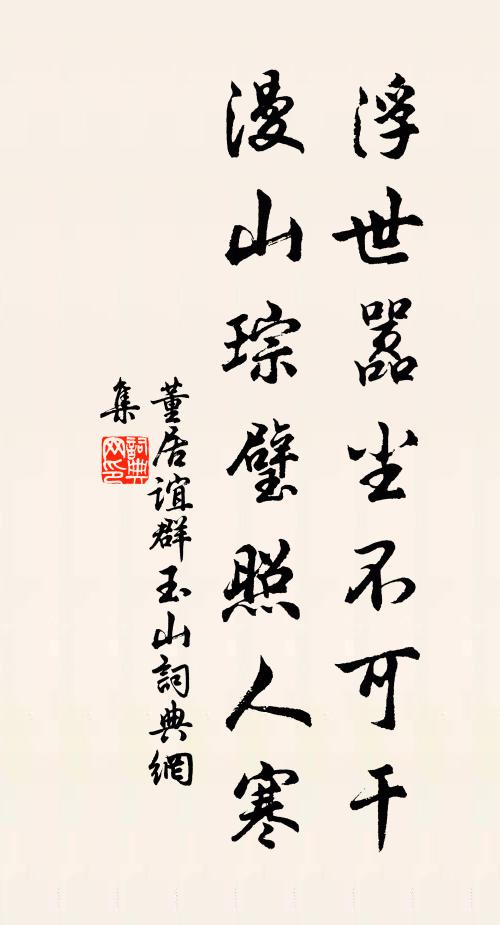 浮世嚣尘不可干
漫山琮璧照人寒
董居谊群玉山詞典網
集
詞典
网印